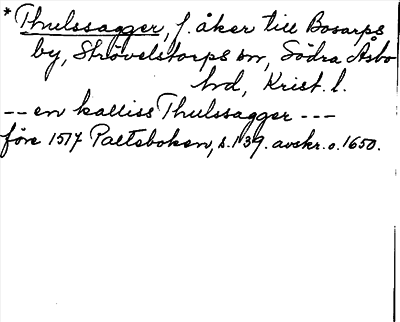 *Thulssagger, f. åker till Bosarps
by, Strövelstorps sn, Södra Åsbo
hd, Krist. l.
-- en kalliss Thulssagger ---
före 1517 Palteboken, s. 139. avskr. o. 1650.